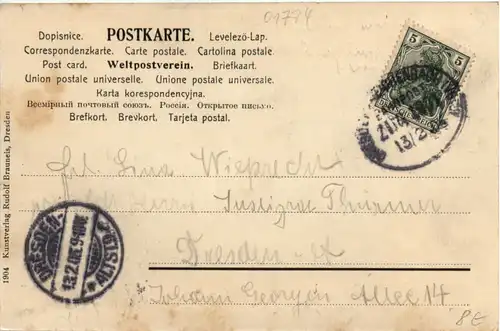 01794
Dopisnice. POSTKARTE. Levelező-Lap.
Correspondenzkarte. Carte postale. Cartolina postale.
Post card. Weltpostverein. Briefkaart.
Union postale universelle. Unione postale universale.
Karta korespondencyjna.
Всемірный почтовый союзъ. Россія. Открытое письмо.
Brefkort. Brevkort. Tarjeta postal.
5 5
13/2
Frl. Lina Wieprecht
Herrn Justizrat Thürmer
Dresden-A
Johann Georgen Allee 14
DRESDEN-
ALTST.
1904 Kunstverlag Rudolf Brauneis, Dresden
8€